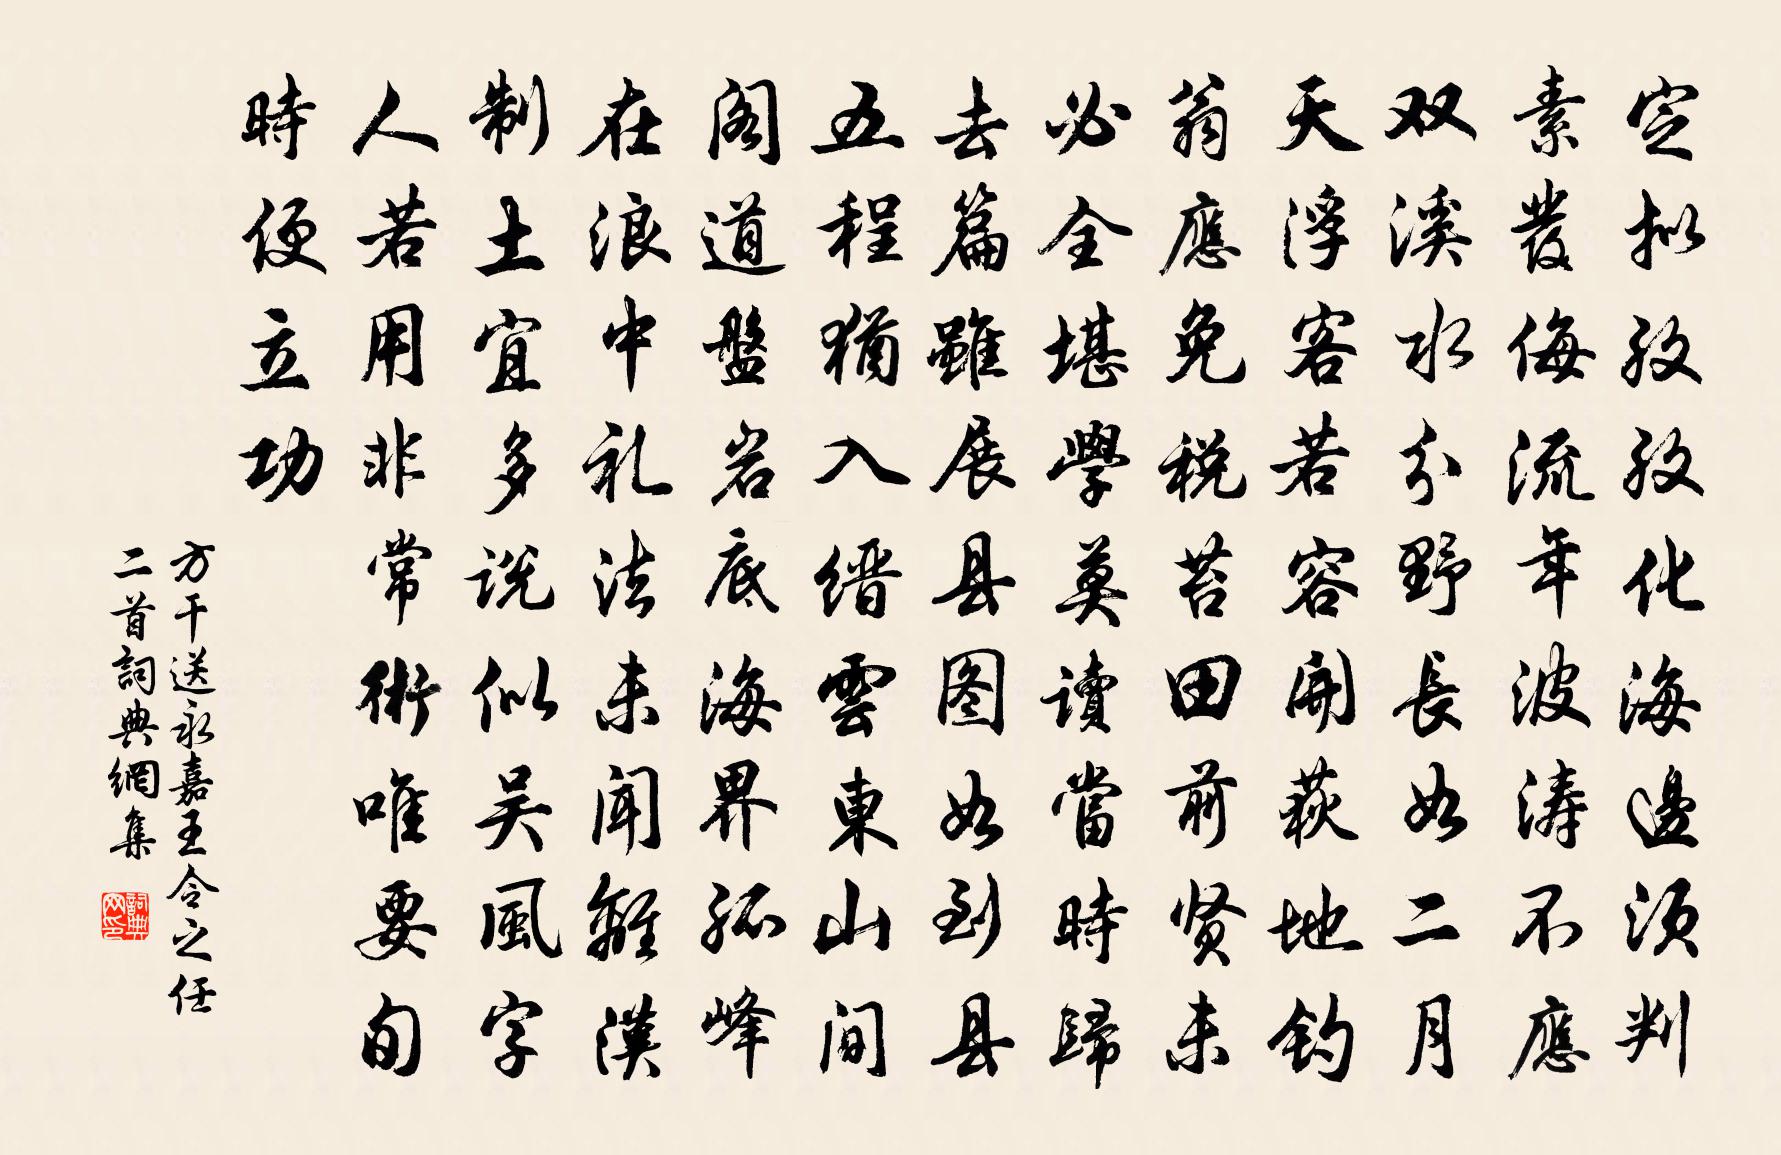 定拟孜孜化海邊须判
素发侮流年波涛不应
双溪水分野長如二月
天浮客若容開荻地钓
翁應免税苔田前贤未
必全堪學莫讀當時歸
去篇雖展县图如到县
五程猶入缙雲東山間
阁道盤岩底海界孤峰
在浪中礼法未闻離漢
制土宜多说似吴風字
人若用非常術唯要旬
時便立功
方干送永嘉王令之任
二首詞典網集
詞典网印